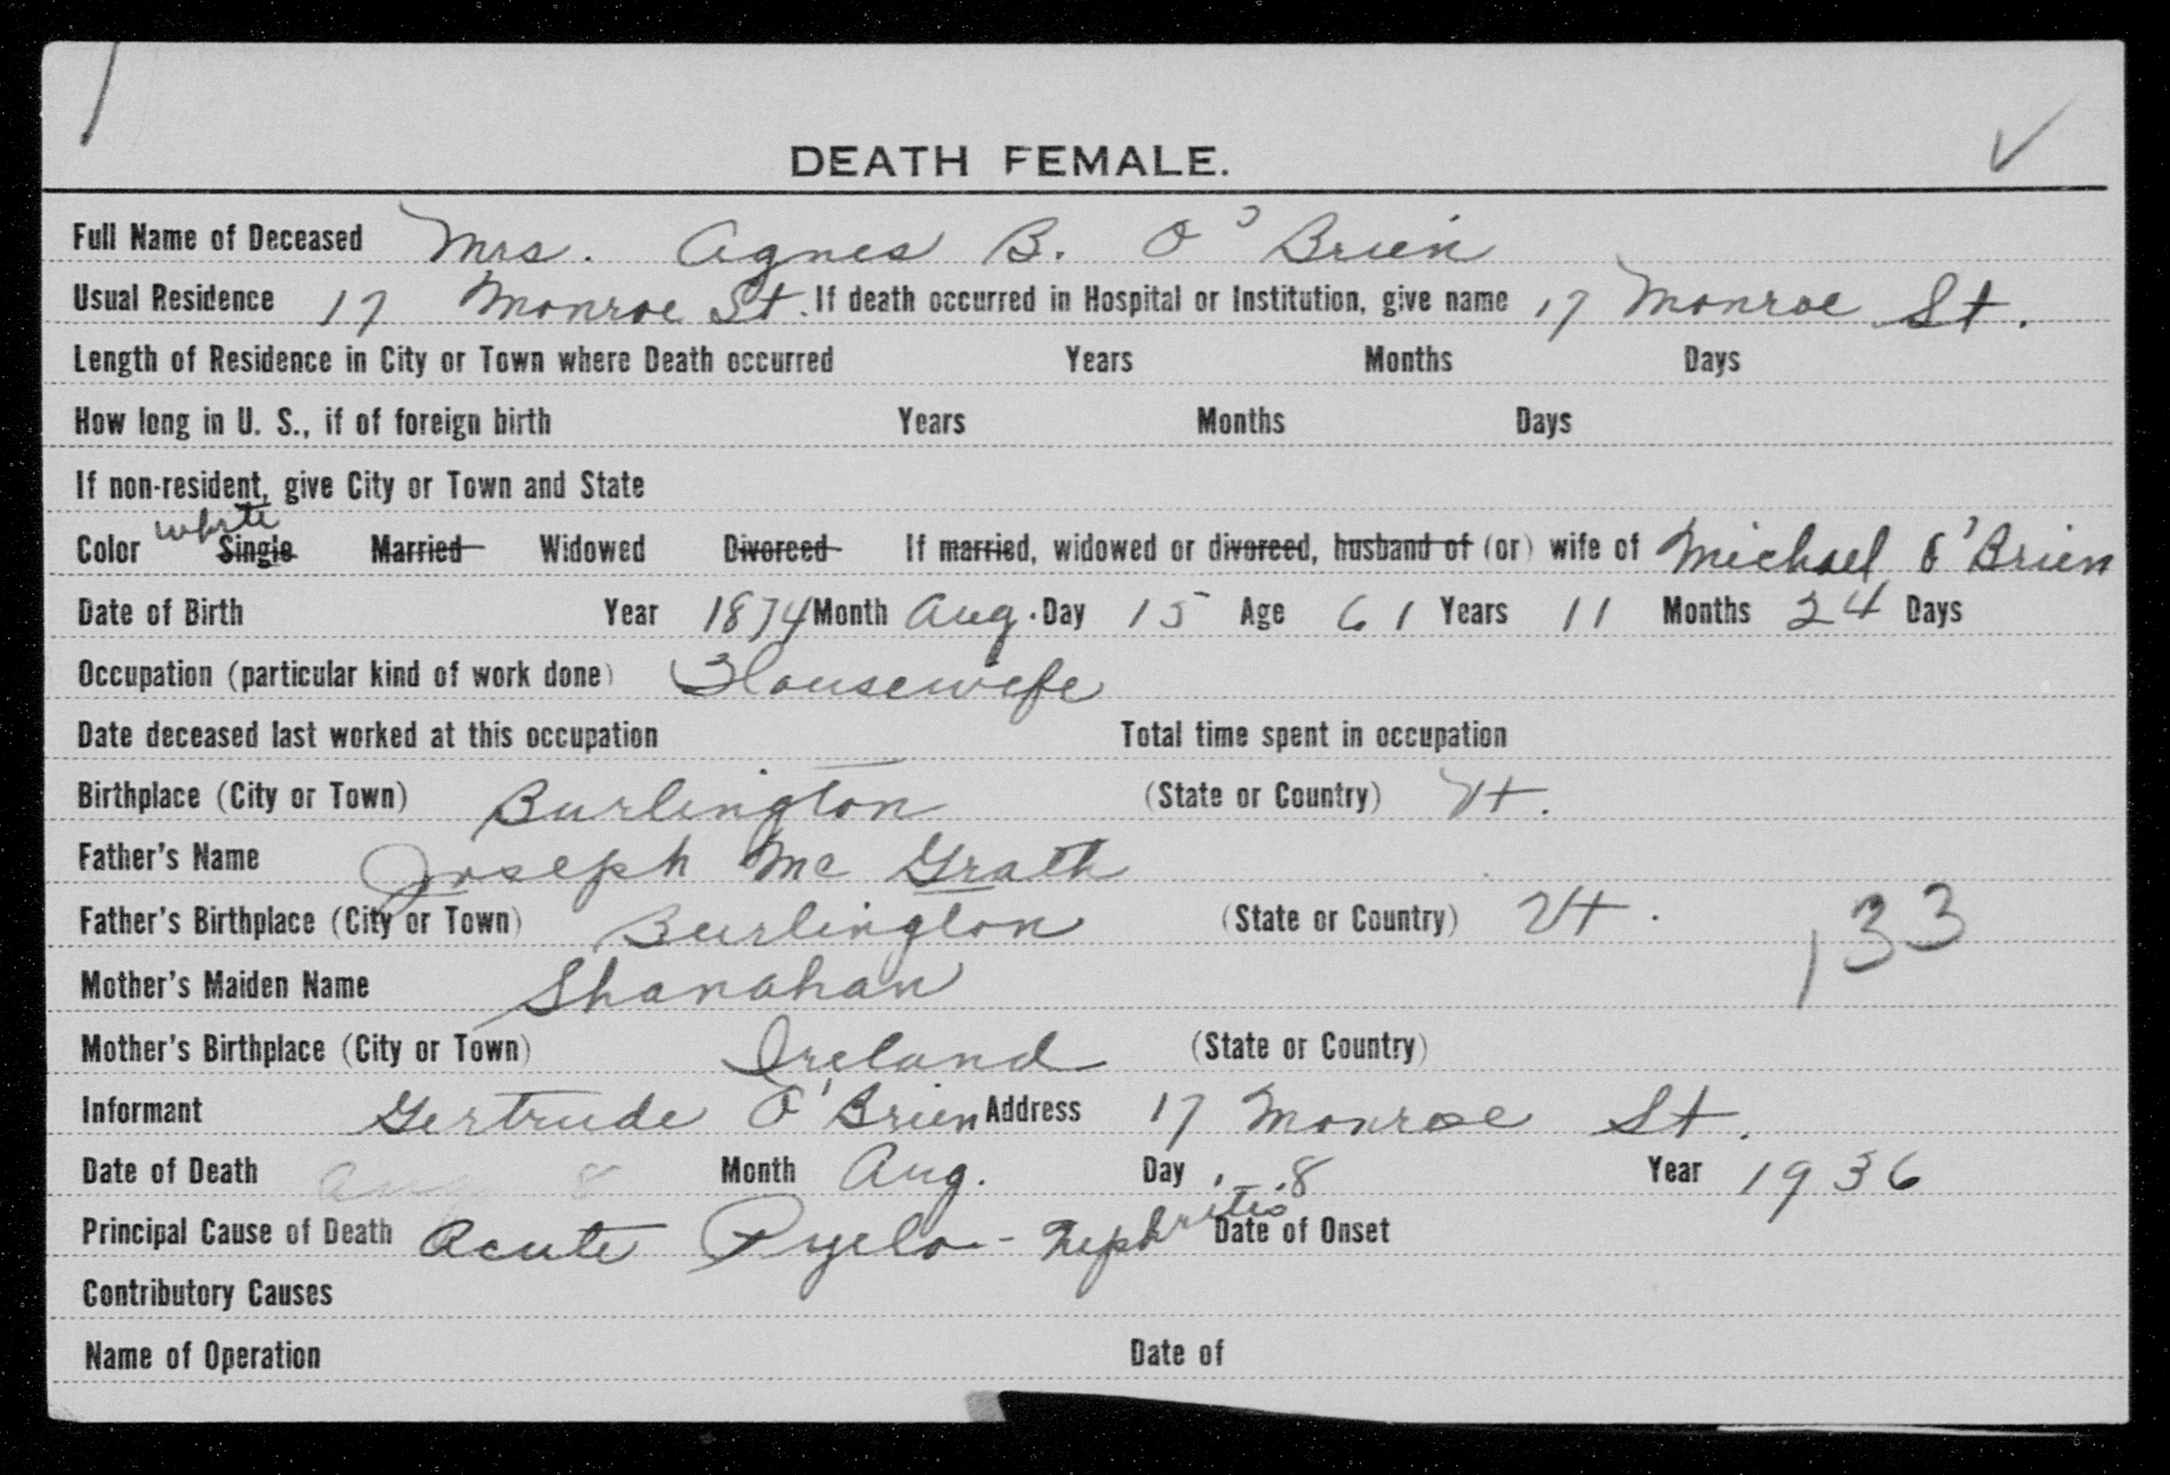 DEATH FEMALE. ✓
Full Name of Deceased Mrs. Agnes B. O'Brien
Usual Residence 17 Monroe St. If death occurred in Hospital or Institution, give name 17 Monroe St.
Length of Residence in City or Town where Death occurred Years Months Days
How long in U. S., if of foreign birth Years Months Days
If non-resident, give City or Town and State
Color white Single Married Widowed Divorced If married, widowed or divorced, husband of (or) wife of Michael O'Brien
Date of Birth Year 1874 Month Aug. Day 15 Age 61 Years 11 Months 24 Days
Occupation (particular kind of work done) Housewife
Date deceased last worked at this occupation Total time spent in occupation
Birthplace (City or Town) Burlington (State or Country) Vt.
Father's Name Joseph Mc Grath
Father's Birthplace (City or Town) Burlington (State or Country) Vt. 133
Mother's Maiden Name Shanahan
Mother's Birthplace (City or Town) Ireland (State or Country)
Informant Gertrude O'Brien Address 17 Monroe St.
Date of Death Aug 8 Month Aug. Day 8 Year 1936
Principal Cause of Death Acute Pyelo-Nephritis Date of Onset
Contributory Causes
Name of Operation Date of